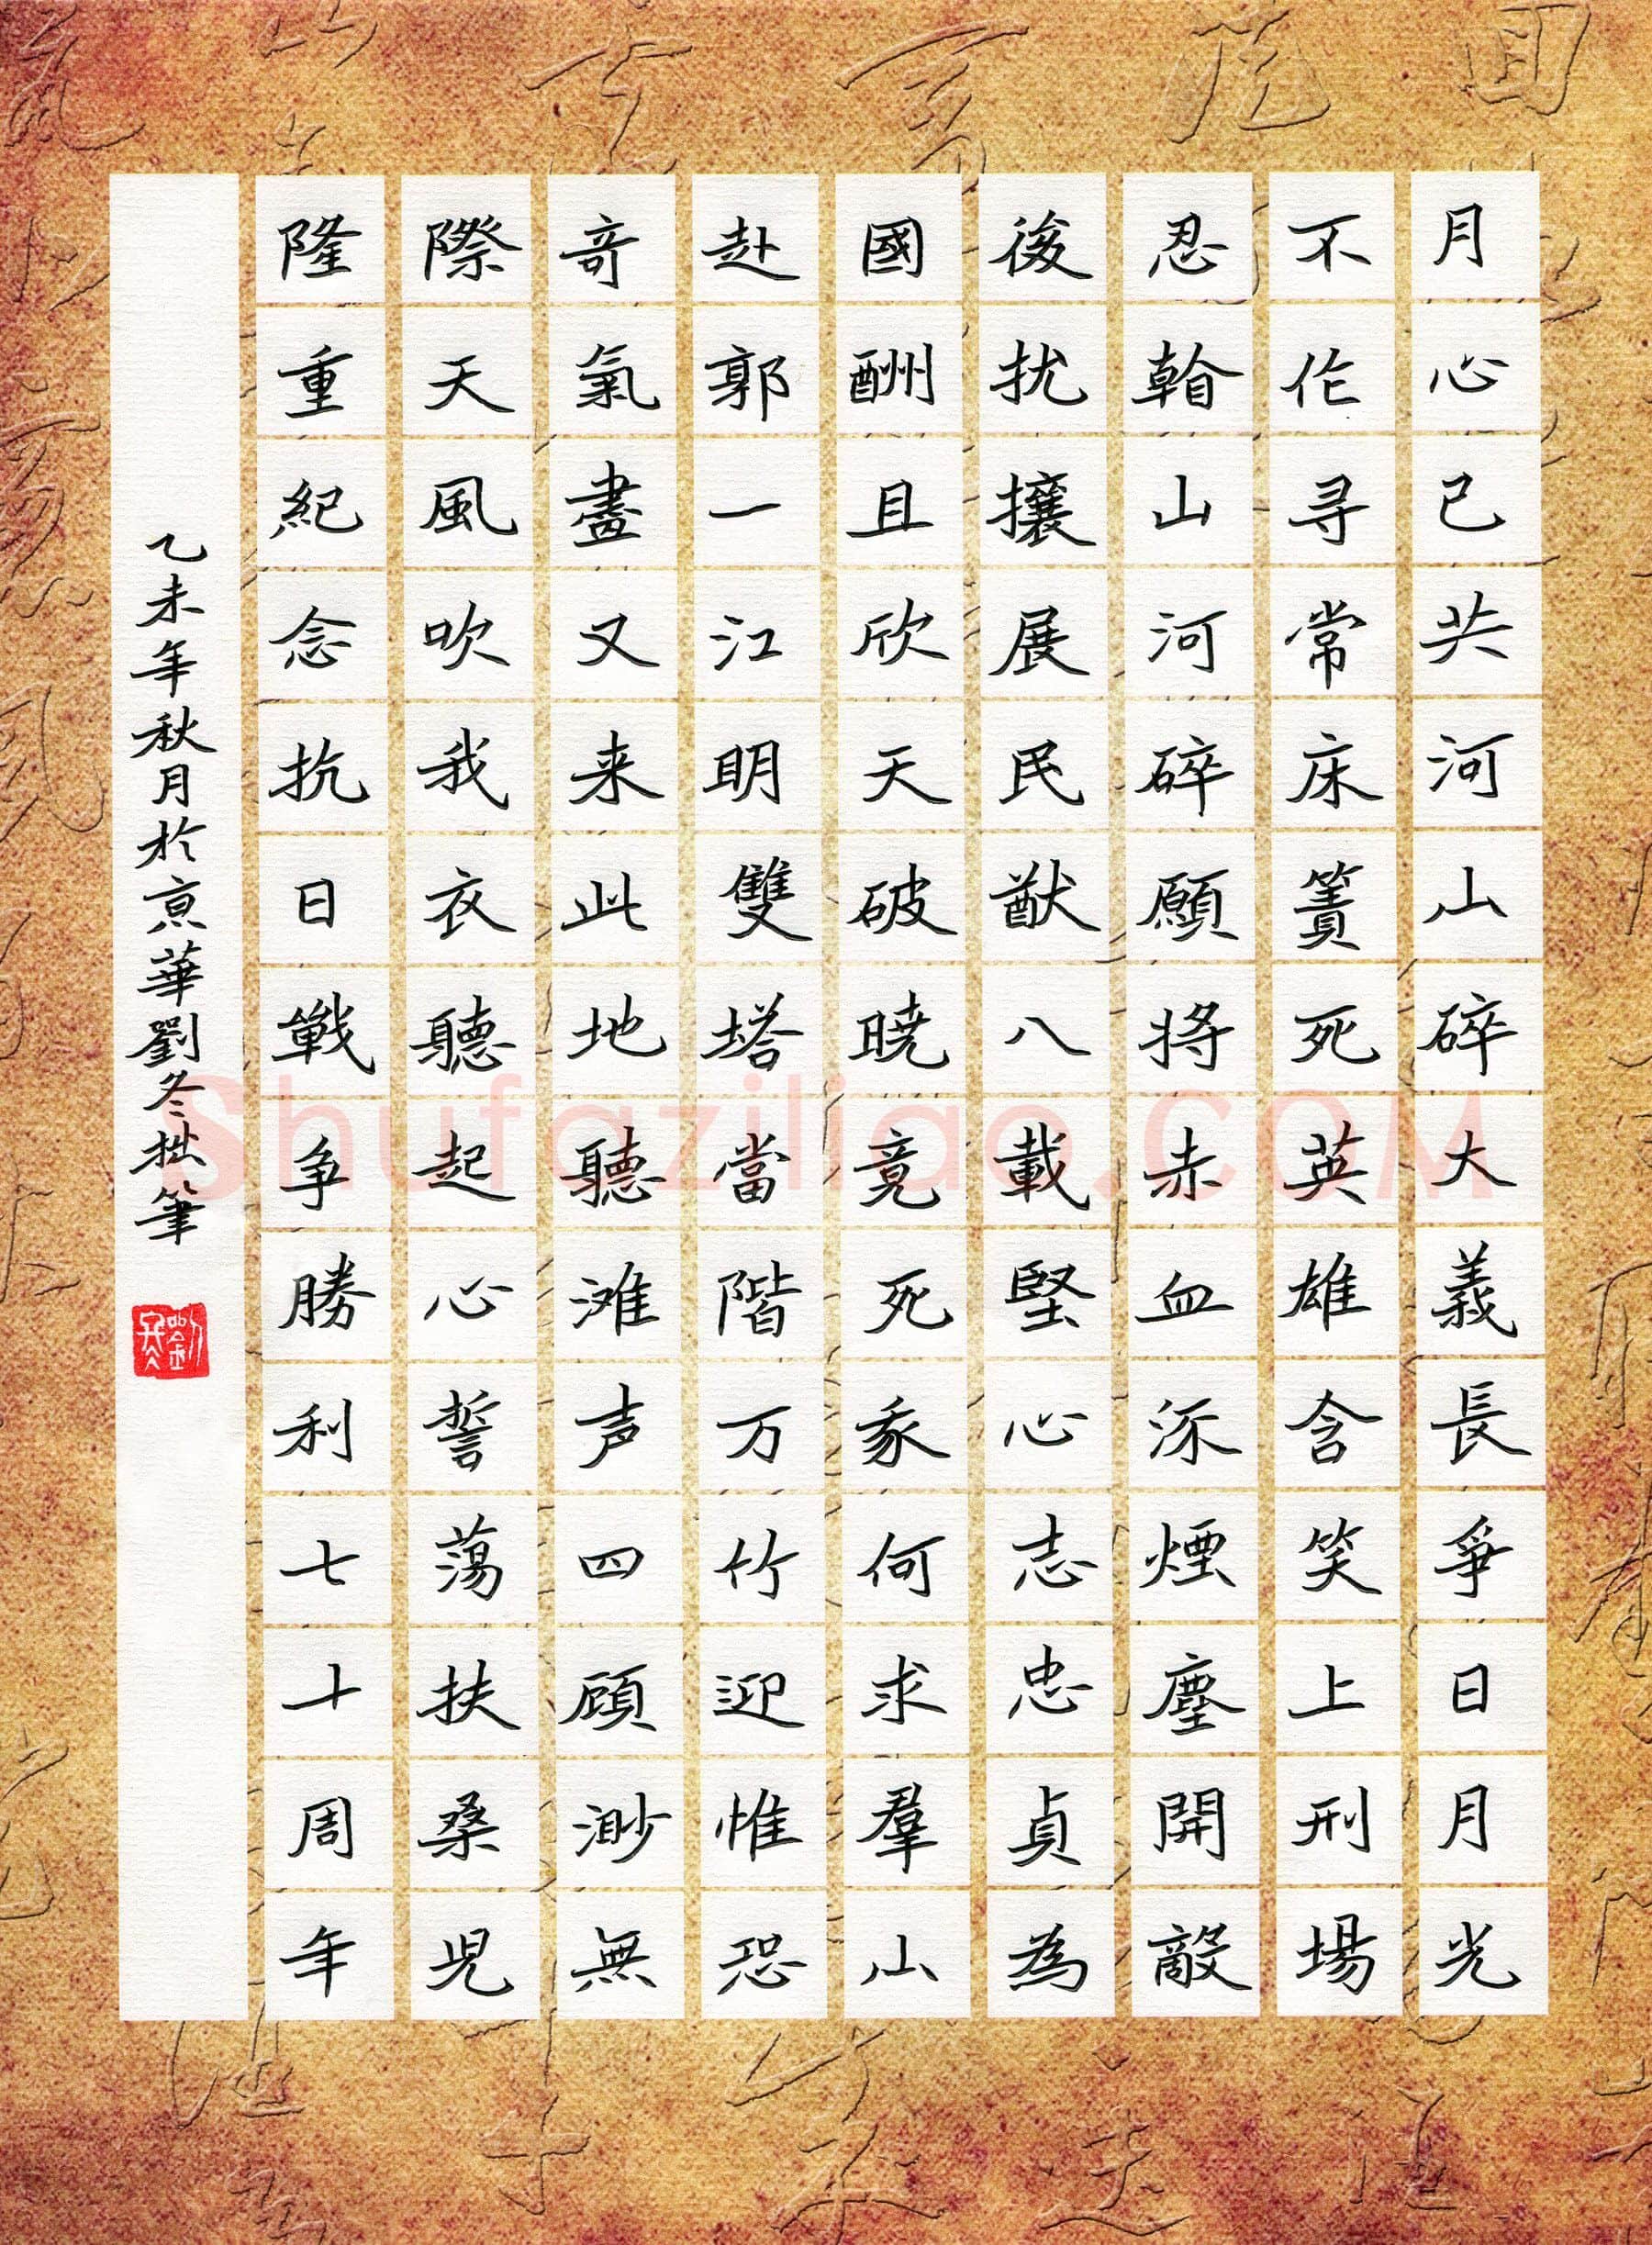 月心已共河山碎大義長爭日月光
不作寻常床簀死英雄含笑上刑場
忍看山河碎願将赤血流煙塵開敵
後扰攘展民猷八載堅心志忠貞為
國酬且欣天破曉竟死豕何求羣山
赴郭一江明雙塔當階万竹迎惟恐
奇氣盡又来此地聽滩声四顧渺無
際天風吹我衣聽起心誓蕩扶桑児
隆重紀念抗日戰争勝利七十周年
乙未年秋月於京華劉冬拙筆
Shufaziliao.COM